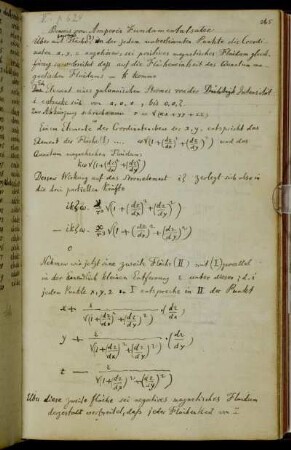 265
Beweis von Ampère's Fundamentalsatze.
Über eine Fläche (I) in der jedem unbestimmten Punkte die Coordi-
naten x, y, z angehören sei positives magnetisches Fluidum gleich-
förmig verbreitet daß auf die Flächeneinheit das Quantum ma-
gnetischen Fluidums = k komme
Das Element eines galvanischen Stromes von der Intensität
i erstrecke sich von 0, 0, 0, bis 0, 0, ζ.
Zur Abkürzung schreibe man r = √(xx + yy + zz)
Einem Elemente der Coordinatenebene der x, y, entspricht das
Element der Fläche (I) .... ω√(1+(dz/dx)²+(dz/dy)²) und das
Quantum magnetischen Fluidums:
kω√(1+(dz/dx)²+(dz/dy)²)
Dessen Wirkung auf das Stromelement iζ zerlegt sich also in
die drei partiellen Kräfte
ikζω. y/r³ √(1+(dz/dx)²+(dz/dy)²)
− ikζω. x/r³ √(1+(dz/dx)²+(dz/dy)²)
0
Nehmen wir jetzt eine zweite Fläche (II) mit (I) parallel
in der unendlich kleinen Entfernung ε unter dieser, d. i.
jedem Punkte x, y, z in I entspreche in II der Punkt
x + ε/√(1+(dz/dx)²+(dz/dy)²) · (dz/dx)
y + ε/√(1+(dz/dx)²+(dz/dy)²) · (dz/dy)
z − ε/√(1+(dz/dx)²+(dz/dy)²)
Über diese zweite Fläche sei negatives magnetisches Fluidum
dergestalt verbreitet, daß jeder Flächentheil von I